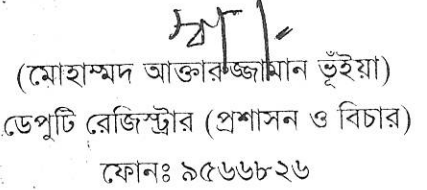 (মোহাম্মদ আক্তারুজ্জামান ভূঁইয়া)
ডেপুটি রেজিস্ট্রার (প্রশাসন ও বিচার)
ফোনঃ ৯৫৬৬৮২৬